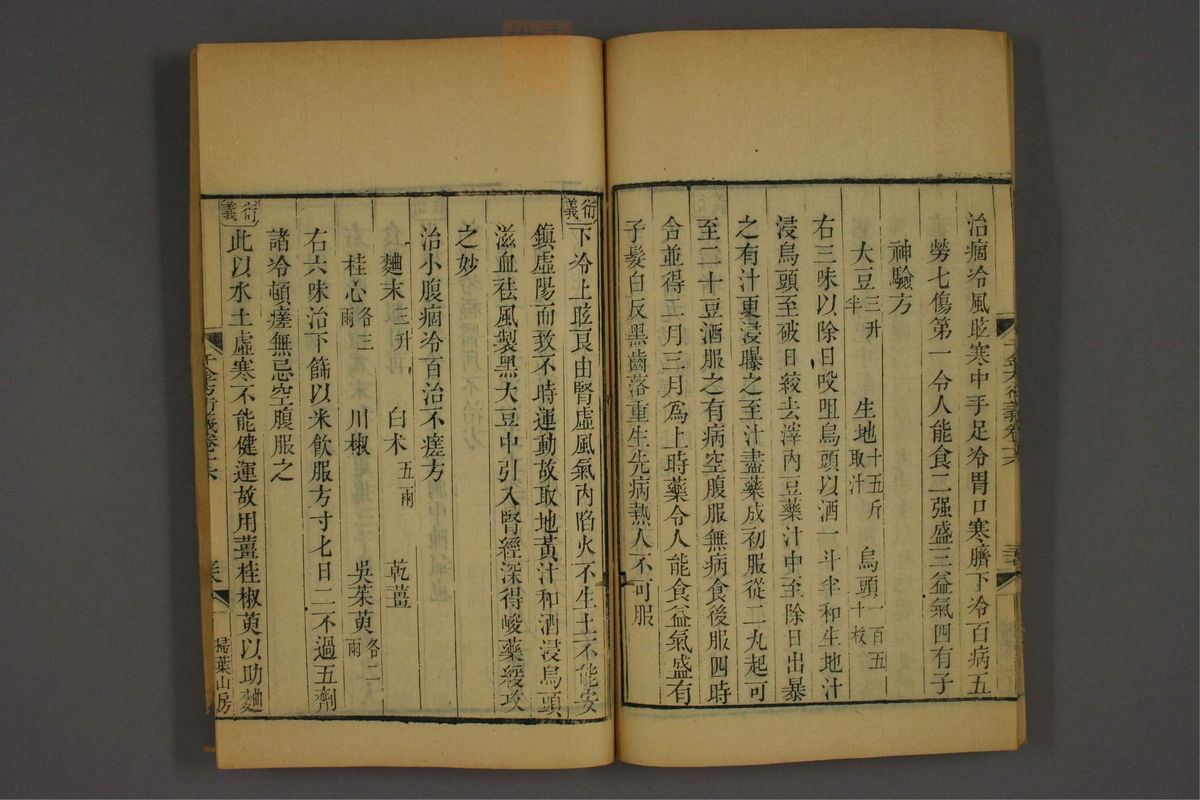 治痼冷風眩寒中手足冷胃口寒臍下冷百病五
勞七傷第一令人能食二强盛三益氣四有子
神驗方
大豆三升半 生地十五斤取汁 烏頭一百五十枚
右三味以除日㕮咀烏頭以酒一斗半和生地汁
浸烏頭至破日絞去滓內豆藥汁中至除日出暴
之有汁更浸曝之至汁盡藥成初服從二丸起可
至二十豆酒服之有病空腹服無病食後服四時
合並得二月三月爲上時藥令人能食益氣盛有
子髮白反黑齒落重生先病熱人不可服
衍義 下冷上眩良由腎虛風氣內陷火不生土不能安
鎮虛陽而致不時運動故取地黃汁和酒浸烏頭
滋血祛風製黑大豆中引入腎經深得峻藥緩攻
之妙
治小腹痼冷百治不瘥方
麯末三升 白朮五兩 乾薑
桂心各三兩 川椒 吳茱萸各二兩
右六味治下篩以米飲服方寸匕日二不過五劑
諸冷頓瘥無忌空腹服之
衍義 此以水土虛寒不能健運故用薑桂椒萸以助麯
千金方衍義卷十六
掃葉山房